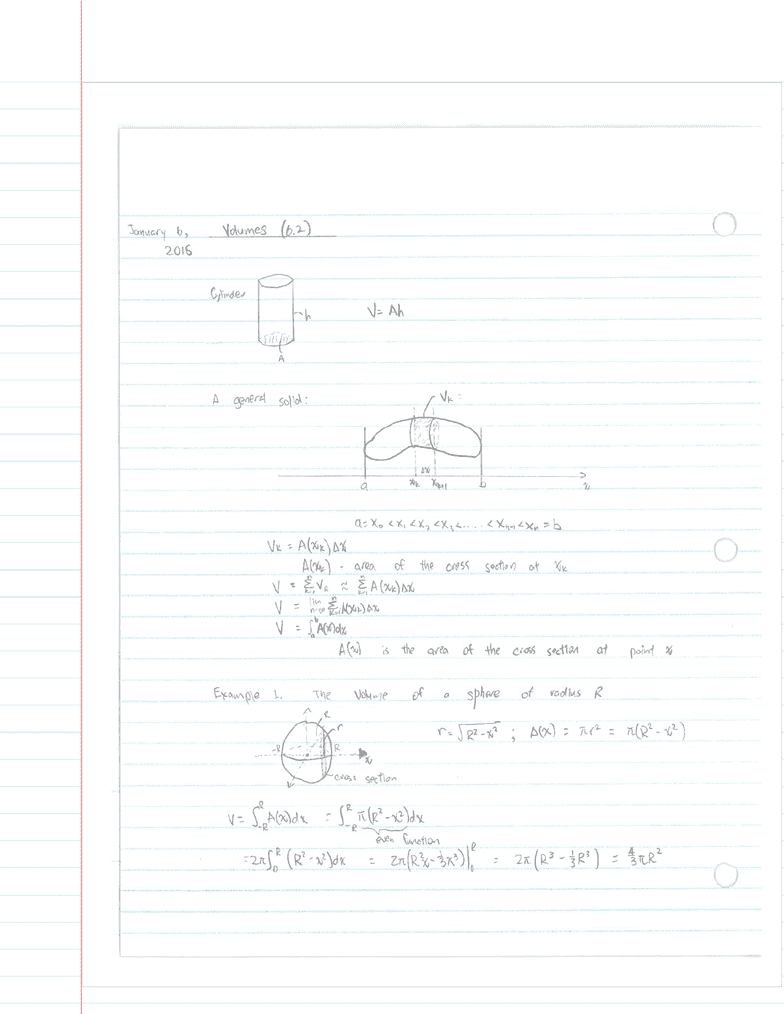 January 6, Volumes (6.2)
2016
Cylinder
h
V = Ah
A
A general solid:
Vk
Δx
a xk xk+1 b x
a = x₀ < x₁ < x₂ < x₃ < .... < xn-1 < xn = b
Vk = A(xk)Δx
A(xk) - area of the cross section at xk
V = Σⁿₖ₌₁ Vk ≈ Σⁿₖ₌₁ A(xk)Δx
V = lim n→∞ Σⁿₖ₌₁ A(xk)Δx
V = ∫ₐᵇ A(x)dx
A(x) is the area of the cross section at point x
Example 1. The Volume of a sphere of radius R
R
r
r = √(R² - x²) ; A(x) = πr² = π(R² - x²)
-R R x
cross section
V = ∫₋ᴿᴿ A(x)dx = ∫₋ᴿᴿ π(R² - x²)dx
even function
= 2π∫₀ᴿ (R² - x²)dx = 2π(R²x - ⅓x³)|₀ᴿ = 2π(R³ - ⅓R³) = 4/3 πR²